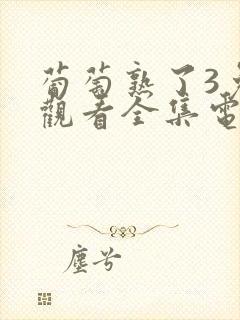 葡萄熟了3
觀看全集電
塵兮